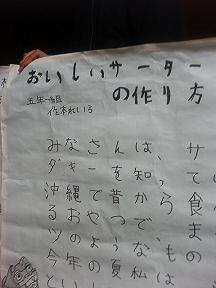 おいしいサーター
の作り方
五年一組
みなさんは、サ
ダギーを知って
沖縄で昔から食
るおやつで、ま
ツのようなもの
今年の夏私は